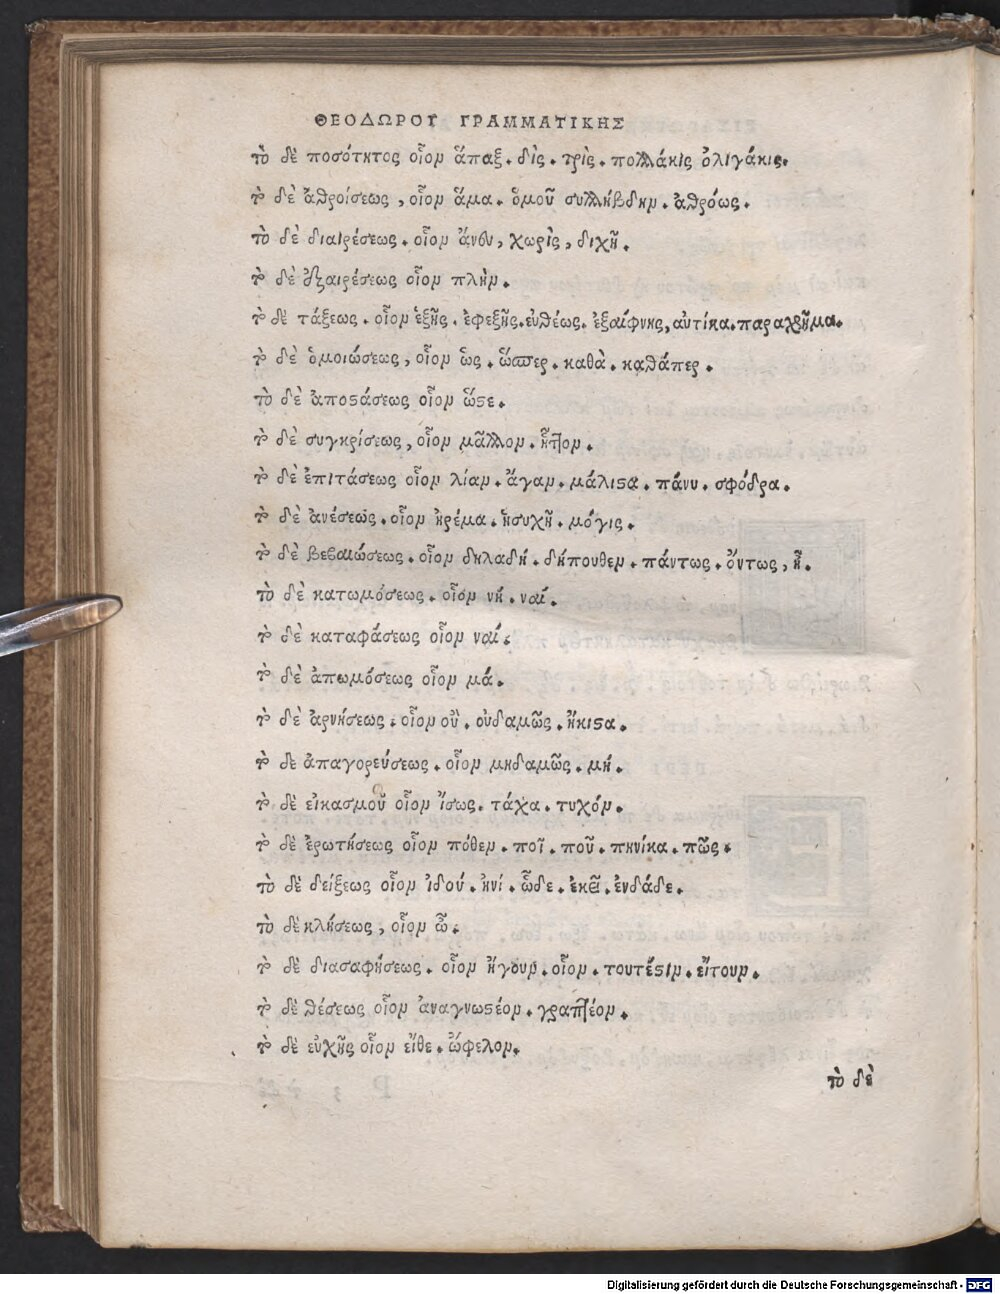 ΘΕΟΔΩΡΟΥ ΓΡΑΜΜΑΤΙΚΗΣ
τὸ δὲ ποσότητος οἷον ἅπαξ. δὶς. τρὶς. πολλάκις ὀλιγάκις.
τὸ δὲ ἀθροίσεως, οἷον ἅμα. ὁμοῦ συλλήβδην. ἀθρόως.
τὸ δὲ διαιρέσεως. οἷον ἄνευ, χωρὶς, διχῆ.
τὸ δὲ ἐξαιρέσεως οἷον πλὴν.
τὸ δὲ τάξεως. οἷον ἑξῆς. ἐφεξῆς. εὐθέως. ἐξαίφνης, αὐτίκα. παραχρῆμα.
τὸ δὲ ὁμοιώσεως, οἷον ὡς. ὥσπερ. καθὰ. καθάπερ.
τὸ δὲ ἀποστάσεως οἷον ὥστε.
τὸ δὲ συγκρίσεως, οἷον μᾶλλον. ἧττον.
τὸ δὲ ἐπιτάσεως οἷον λίαν. ἄγαν. μάλιστα. πάνυ. σφόδρα.
τὸ δὲ ἀνέσεως. οἷον ἠρέμα. ἡσυχῆ. μόγις.
τὸ δὲ βεβαιώσεως. οἷον δηλαδή. δήπουθεν. πάντως. ὄντως, ἦ.
τὸ δὲ κατωμόσεως. οἷον νή. ναί.
τὸ δὲ καταφάσεως οἷον ναί.
τὸ δὲ ἀπωμόσεως οἷον μά.
τὸ δὲ ἀρνήσεως. οἷον οὐ. οὐδαμῶς. ἥκιστα.
τὸ δὲ ἀπαγορεύσεως. οἷον μηδαμῶς. μή.
τὸ δὲ εἰκασμοῦ οἷον ἴσως. τάχα. τυχόν.
τὸ δὲ ἐρωτήσεως οἷον πόθεν. ποῖ. ποῦ. πηνίκα. πῶς.
τὸ δὲ δείξεως οἷον ἰδού. ἠνί. ὧδε. ἐκεῖ. ἐνθάδε.
τὸ δὲ κλήσεως, οἷον ὦ.
τὸ δὲ διασαφήσεως. οἷον ἤγουν. οἷον. τουτέστιν. εἴτουν.
τὸ δὲ θέσεως οἷον ἀναγνωστέον. γραπτέον.
τὸ δὲ εὐχῆς οἷον εἴθε. ὤφελον.
τὸ δὲ
Digitalisierung gefördert durch die Deutsche Forschungsgemeinschaft - DFG